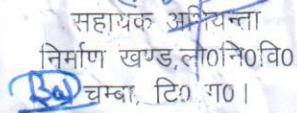 सहायक अभियन्ता
निर्माण खण्ड,लो०नि०वि०
चम्बा, टि० ग०।